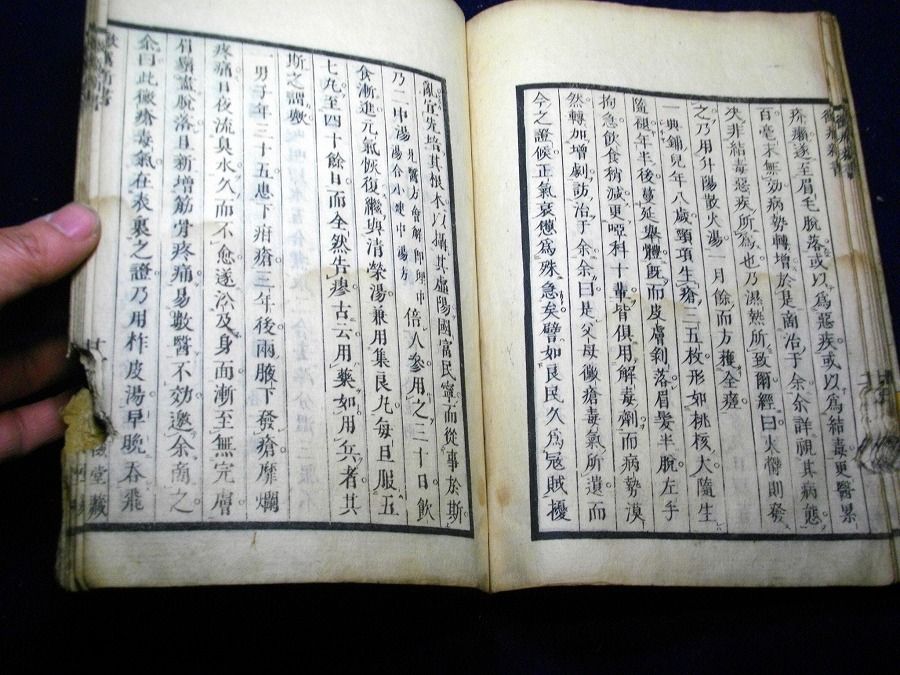 殊瀨遂至眉毛脫落或以爲惡疾或以爲結毒更醫累
百毫末無効病勢轉增於是商治于余余詳視其病態
決非結毒惡疾所爲也乃濕熱所致爾經曰火欝則發
之乃用升陽散火湯一月餘而方獲全瘥
一典鋪兒年八歲頸項生瘡三五枚形如桃核大隨生
隨褪年半後蔓延擧體既而皮膚剝落眉髮半脫左手
拘急飮食稍減更啞科十輩皆俱用解毒劑而病勢漠
然轉加增劇訪治于余余曰是父母黴瘡毒氣所遺而
今之證候正氣衰憊爲殊急矣譬如良民久爲冦賊擾
亂宜先培其根本以攝其虛陽國富民寧而從事於斯
乃二中湯湯合小建中湯方見醫方會解即理中倍人參用之二十日飮
食漸進元氣恢復繼與淸榮湯兼用集良丸每旦服五
七丸至四十餘日而全然告痊古云用藥如用兵者其
斯之謂歟
一男子年三十五患下疳瘡三年後兩腋下發瘡靡爛
疼痛日夜流臭水久而不愈遂㳂及身而漸至無完膚
眉鬚盡脫落日新增筋骨疼痛易數醫不効邀余商之
余曰此黴瘡毒氣在表裏之證乃用柞皮湯早晩吞飛
堂藏